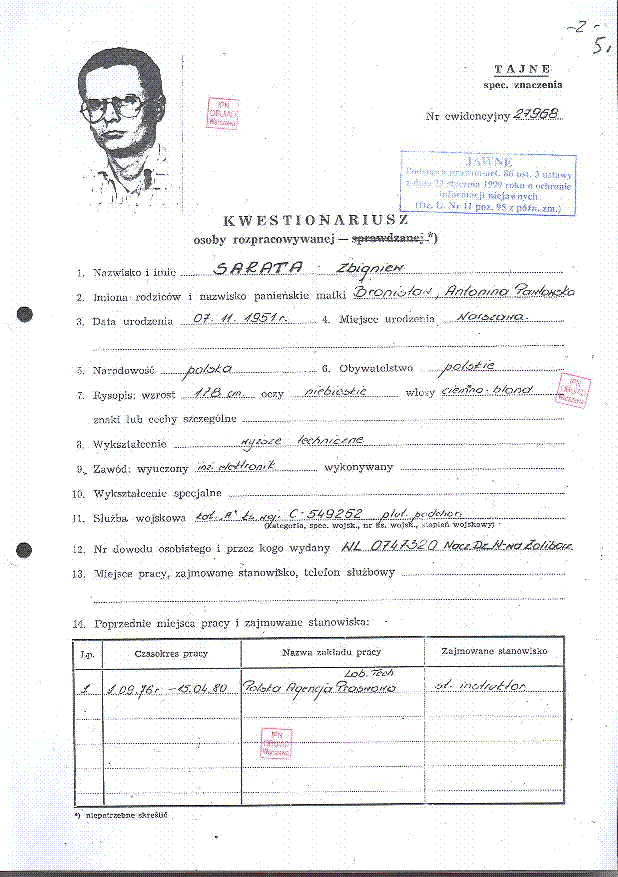 -2-
5.
TAJNE
spec. znaczenia
IPN
OBUiAD
Warszawa
Nr ewidencyjny 27968
JAWNE
Podstawa prawna-art. 86 ust. 3 ustawy
z dnia 22 stycznia 1999 roku o ochronie
informacji niejawnych
(Dz. U. Nr 11 poz. 95 z późn. zm.)
KWESTIONARIUSZ
osoby rozpracowywanej — sprawdzanej *)
1. Nazwisko i imię SARATA Zbigniew
2. Imiona rodziców i nazwisko panieńskie matki Bronisław, Antonina Pawłowska
3. Data urodzenia 07. 11. 1951 r. 4. Miejsce urodzenia Warszawa.
5. Narodowość polska 6. Obywatelstwo polskie
7. Rysopis: wzrost 178 cm oczy niebieskie włosy ciemno-blond
IPN
OBUiAD
Warszawa
znaki lub cechy szczególne
8. Wykształcenie wyższe techniczne
9. Zawód: wyuczony inż. elektronik wykonywany
10. Wykształcenie specjalne
11. Służba wojskowa kat. "A" ks. woj. C-549252 plut. podchor.
(Kategoria, spec. wojsk., nr ks. wojsk., stopień wojskowy)
12. Nr dowodu osobistego i przez kogo wydany WL 0747320 Nacz. Dz. W-wa Żoliborz
13. Miejsce pracy, zajmowane stanowisko, telefon służbowy
14. Poprzednie miejsca pracy i zajmowane stanowiska:
Lp. Czasokres pracy Nazwa zakładu pracy Zajmowane stanowisko
Lab. Tech.
1 1.09.76 r. - 15.04.80 Polska Agencja Prasowa st. instruktor
IPN
OBUiAD
Warszawa
*) niepotrzebne skreślić